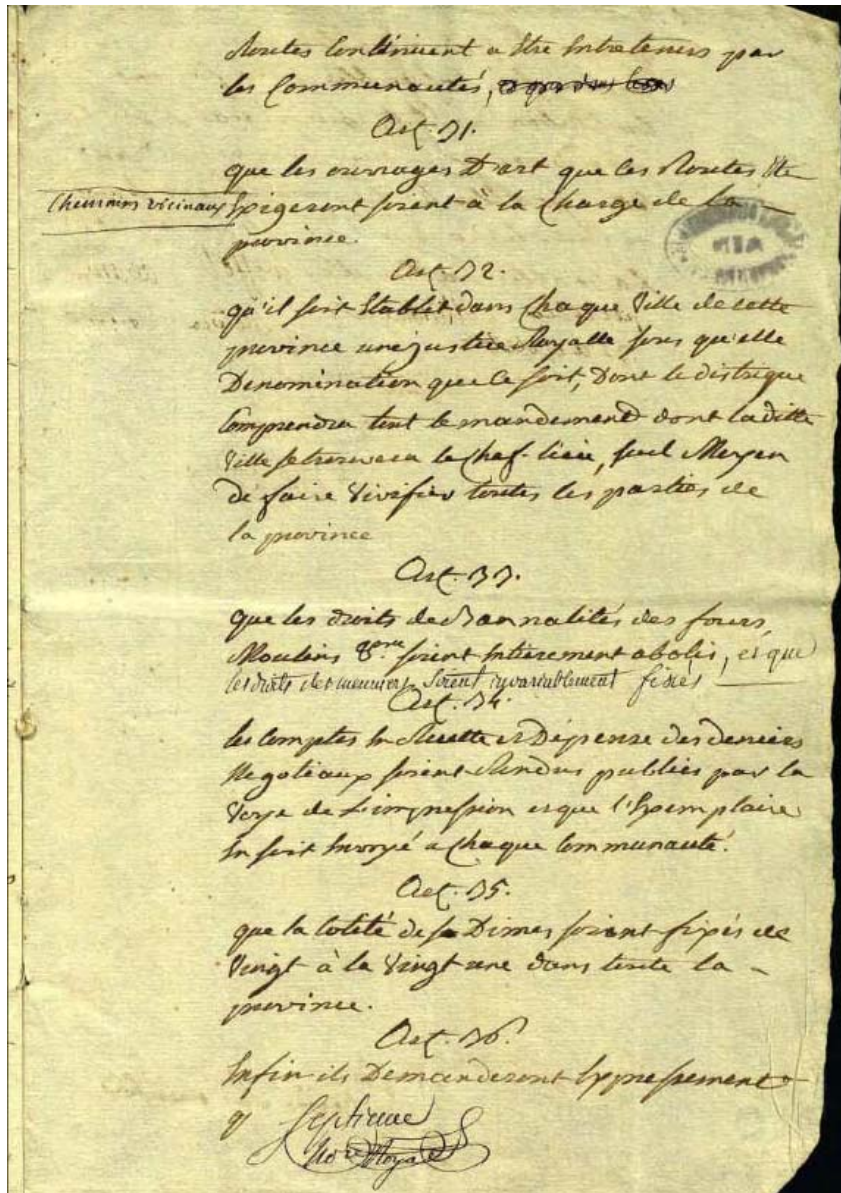 Routes Continuent a Etre Entretenus par
les Communautés,
Art. 31.
que les ouvrages D'art que les Routes Etc
chemins vicinaux
Exigeront soient à la Charge de la
province.
Art. 32.
qu'il soit Etablit dans Chaque Ville de cette
province une justice Royalle sous qu'elle
Denomination que Ce soit, Dont le distrique
Comprendra tout le mandement dont la ditte
Ville se trouvera le Chef-lieu, seul Moyen
de faire Vivifier toutes les parties de
la province
Art. 33.
que les droits de Bannalités des fours,
Moulins &c. soient Entierement abolis, et que
les droits des meuniers soient invariablement fixés
Art. 34.
les Comptes En Recette et Dépense des deniers
Negotiaux soient Rendus publics par la
Voye de L'impression et que l'Exemplaire
En soit Envoyé a Chaque Communauté.
Art. 35.
que la Cotité des Dimes soient fixés de
Vingt à la Vingt une dans toute la
province.
Art. 36.
Enfin ils Demanderont Expressement
Nore Royal